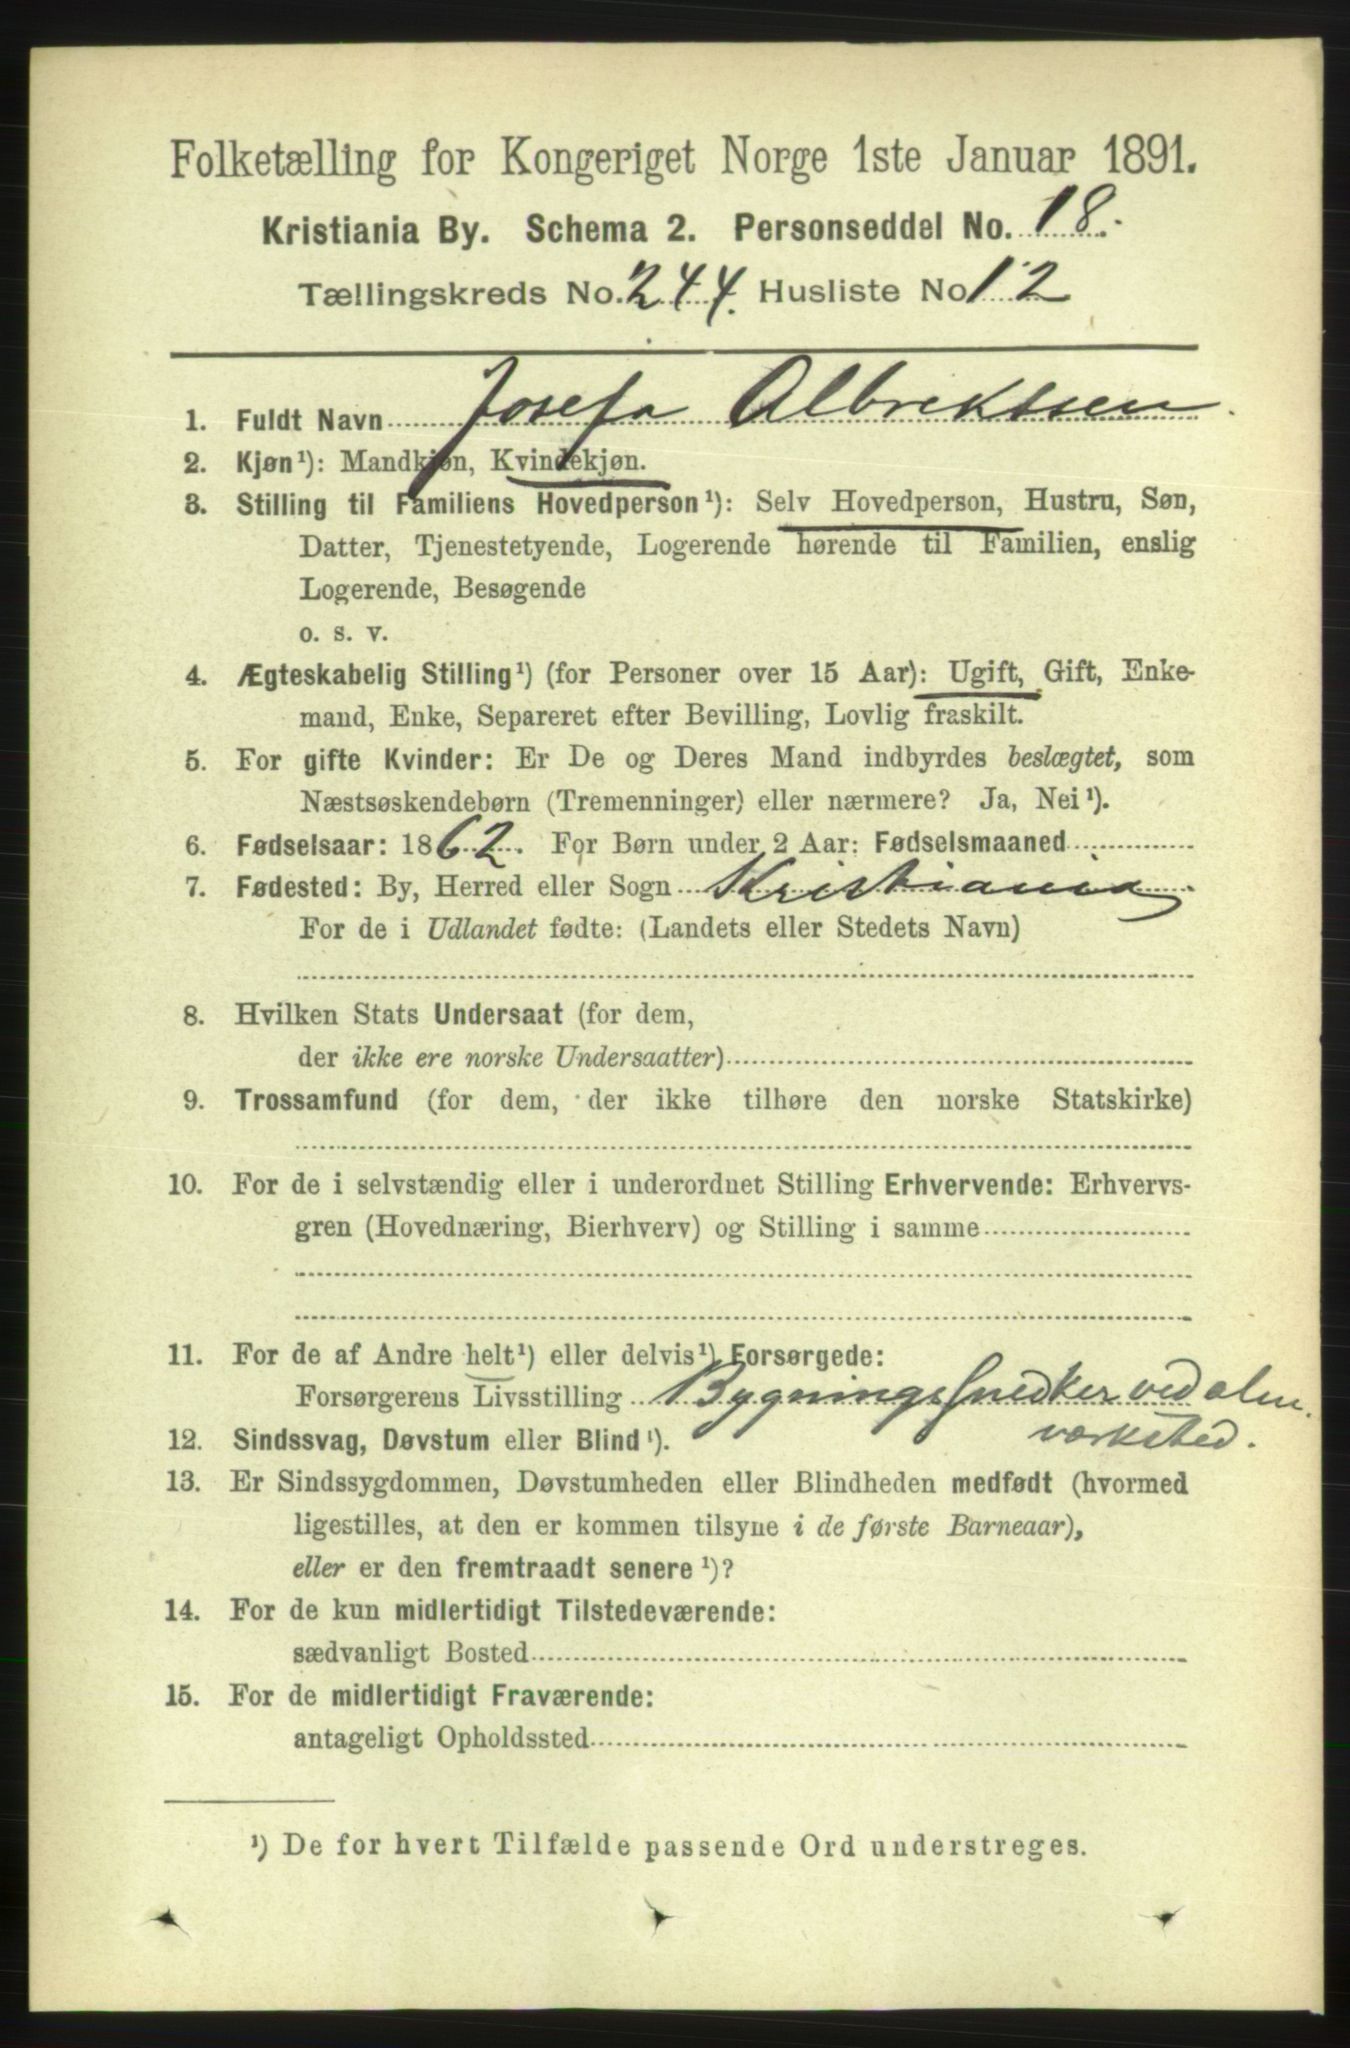 Folketælling for Kongeriget Norge 1ste Januar 1891.
Kristiania By. Schema 2. Personseddel No. 18.
Tællingskreds No. 244. Husliste No 12
1. Fuldt Navn Josefa Albrektsen.
2. Kjøn¹): Mandkjøn, Kvindekjøn.
3. Stilling til Familiens Hovedperson¹): Selv Hovedperson, Hustru, Søn,
Datter, Tjenestetyende, Logerende hørende til Familien, enslig
Logerende, Besøgende
o. s. v.
4. Ægteskabelig Stilling¹) (for Personer over 15 Aar): Ugift, Gift, Enke-
mand, Enke, Separeret efter Bevilling, Lovlig fraskilt.
5. For gifte Kvinder: Er De og Deres Mand indbyrdes beslægtet, som
Næstsøskendebørn (Tremenninger) eller nærmere? Ja, Nei¹).
6. Fødselsaar: 1862. For Børn under 2 Aar: Fødselsmaaned
7. Fødested: By, Herred eller Sogn Kristiania
For de i Udlandet fødte: (Landets eller Stedets Navn)
8. Hvilken Stats Undersaat (for dem,
der ikke ere norske Undersaatter)
9. Trossamfund (for dem, der ikke tilhøre den norske Statskirke)
10. For de i selvstændig eller i underordnet Stilling Erhvervende: Erhvervs-
gren (Hovednæring, Bierhverv) og Stilling i samme
11. For de af Andre helt¹) eller delvis¹) Forsørgede:
Forsørgerens Livsstilling Bygningssnedker ved
værksted.
12. Sindssvag, Døvstum eller Blind¹).
13. Er Sindssygdommen, Døvstumheden eller Blindheden medfødt (hvormed
ligestilles, at den er kommen tilsyne i de første Barneaar),
eller er den fremtraadt senere¹)?
14. For de kun midlertidigt Tilstedeværende:
sædvanligt Bosted
15. For de midlertidigt Fraværende:
antageligt Opholdssted
¹) De for hvert Tilfælde passende Ord understreges.